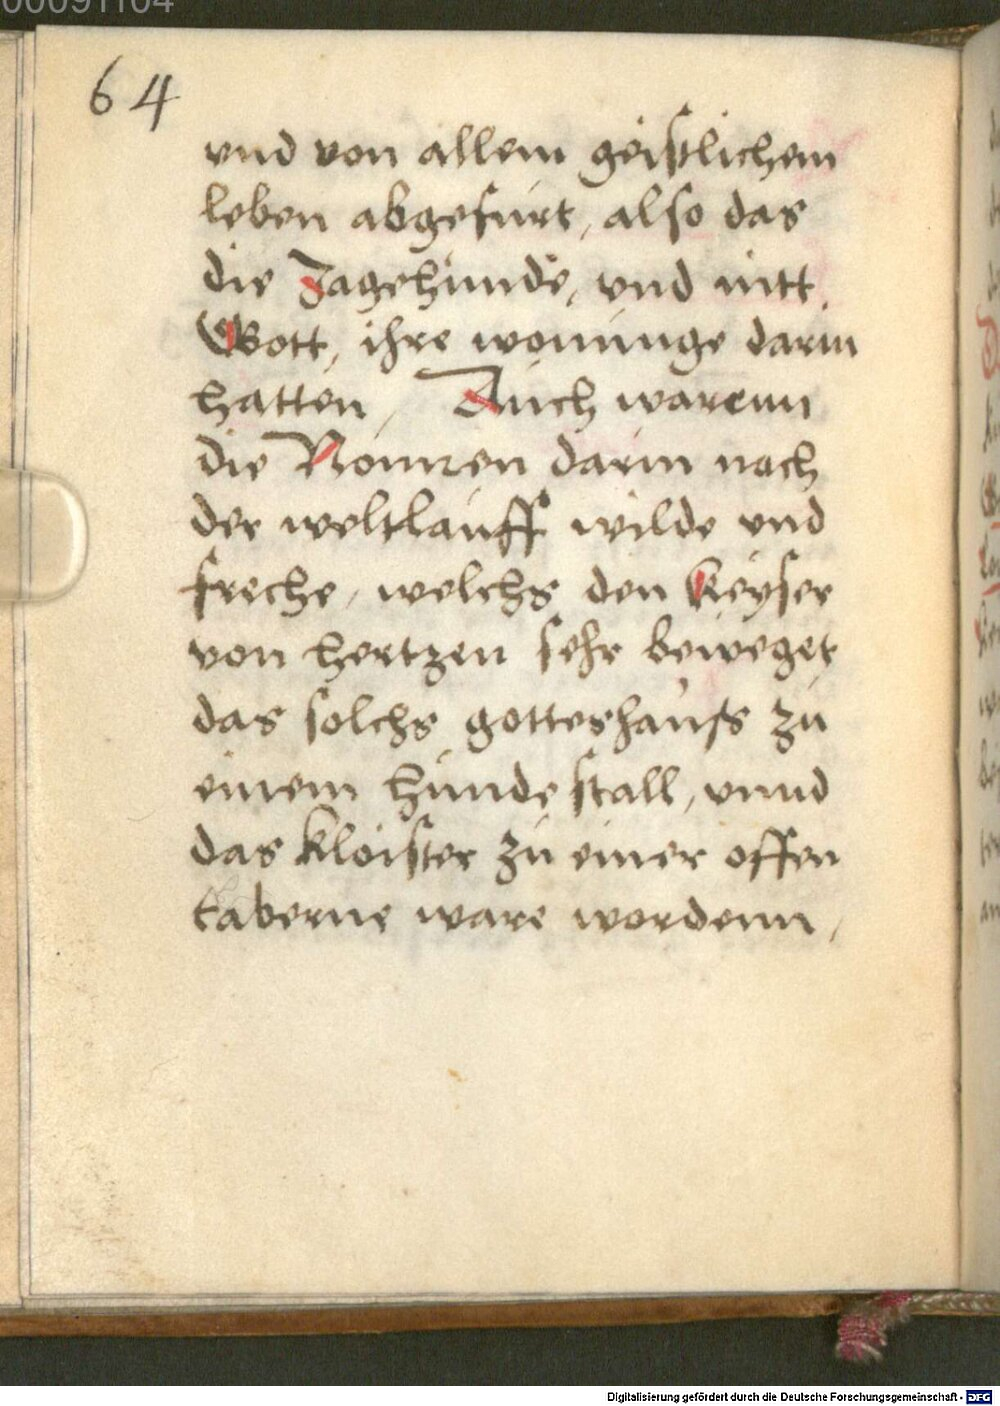 00091104
64
vnd von allem geistlichem
leben abgefurt, also das
die Jagehunde, vnd nitt
Gott, ihre wonunge darin
hatten, Auch warenn
die Nonnen darin nach
der weltlauff wilde vnd
freche, welchs den Keyser
von hertzen sehr beweget,
das solchs gotteshauss zu
einem hunde stall, vnnd
das kloister zu einer offen
taberne ware wordenn,
Digitalisierung gefördert durch die Deutsche Forschungsgemeinschaft - DFG